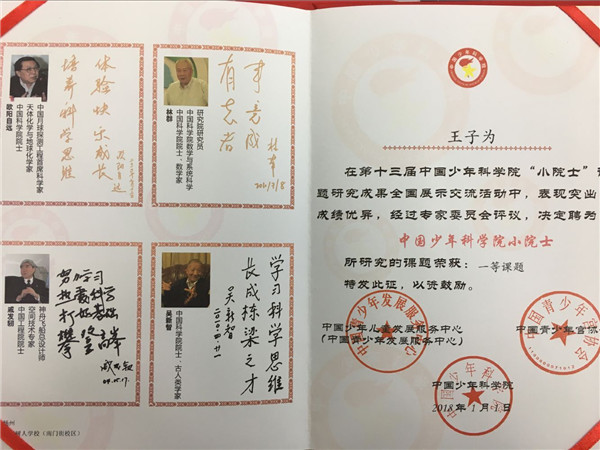 体验快乐成长
培养科学思维
欧阳自远
中国科学院院士
天体化学与地球化学家
中国月球探测工程首席科学家
有志者
事竟成
林群
林群
中国科学院院士、数学家
中国科学院数学与系统科学
研究院研究员
努力学习
打好科学基础
攀登高峰
戚发轫
戚发轫
中国工程院院士
空间技术专家
神舟飞船总设计师
学习科学思维
长成栋梁之才
吴新智
吴新智
中国科学院院士、古人类学家
树人学校(南门街校区)
王子为
在第十三届中国少年科学院“小院士”
题研究成果全国展示交流活动中,表现突出
成绩优异,经过专家委员会评议,决定聘为
中国少年科学院小院士
所研究的课题荣获:一等课题
特发此证,以资鼓励。
中国少年儿童发展服务中心
(中国青少年发展服务中心)
中国青少年宫协
中国少年科学院
2018年1月1日